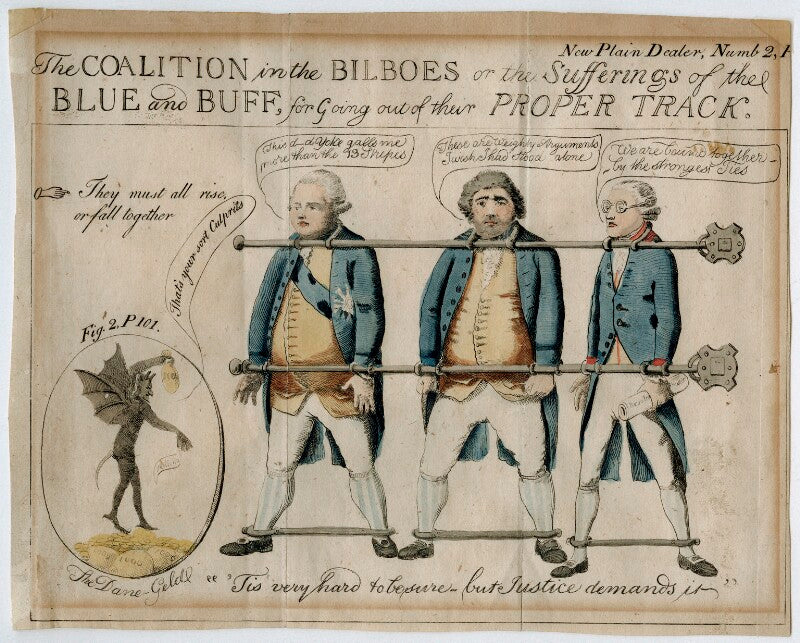 New Plain Dealer, Numb 2, P
The COALITION in the BILBOES or the Sufferings of the
BLUE and BUFF, for Going out of their PROPER TRACK.
This d—d Yoke galls me
more than the 13 Stripes
These are Weighty Arguments
I wish I had stood alone
We are bound together
by the strongest Ties
They must all rise,
or fall together
That's your sort Culprits
Fig. 2. P 101.
The Dane-Geld
" 'Tis very hard to be sure - but Justice demands it "